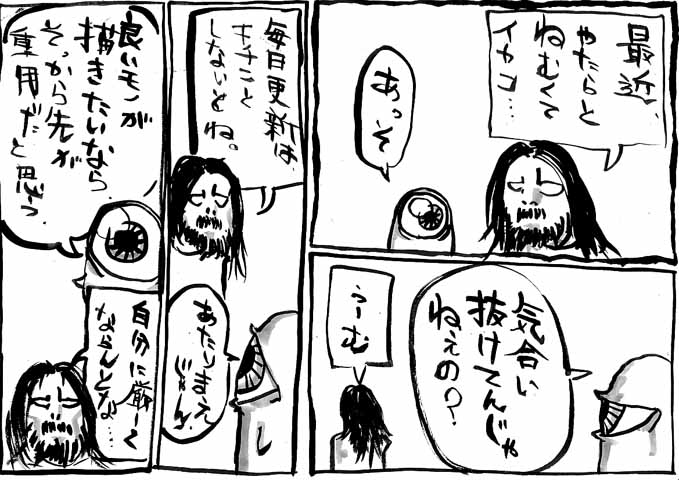 最近、
やたらと
ねむくて
イカン…
あっそ
気合い
抜けてんじゃ
ねぇの?
うーむ
毎日更新は、
キチンと
しないとね。
あたりまえ
じゃん。
良いモノが
描きたいなら、
そっから先が
重用だと思う
自分に厳しく
ならんとな…